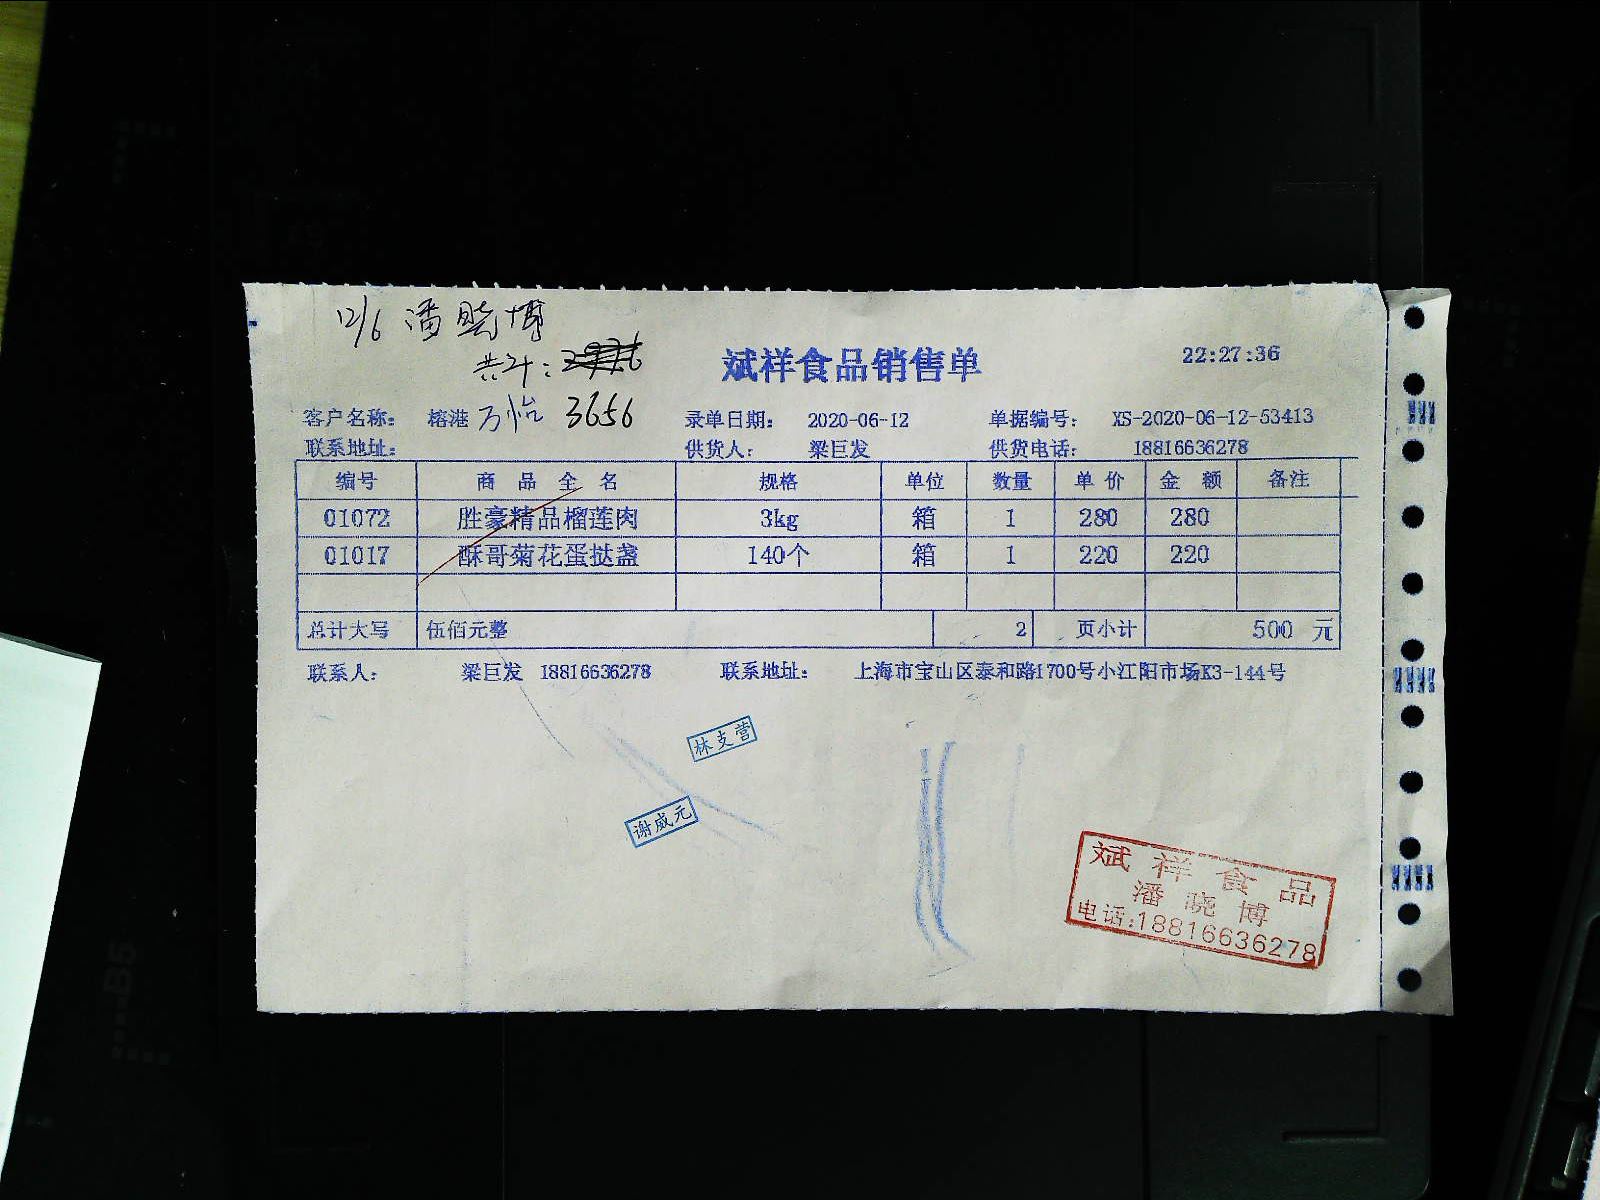 12/6 潘晓博
共计:
斌祥食品销售单 22:27:36
客户名称: 榕港 万怡 3656 录单日期: 2020-06-12 单据编号: XS-2020-06-12-53413
联系地址: 供货人: 梁巨发 供货电话: 18816636278
编号 商品全名 规格 单位 数量 单价 金额 备注
01072 胜豪精品榴莲肉 3kg 箱 1 280 280
01017 酥哥菊花蛋挞盏 140个 箱 1 220 220
总计大写 伍佰元整 2 页小计 500 元
联系人: 梁巨发 18816636278 联系地址: 上海市宝山区泰和路1700号小江阳市场K3-144号
林支营
谢威元
斌祥食品
潘晓博
电话:18816636278
B5